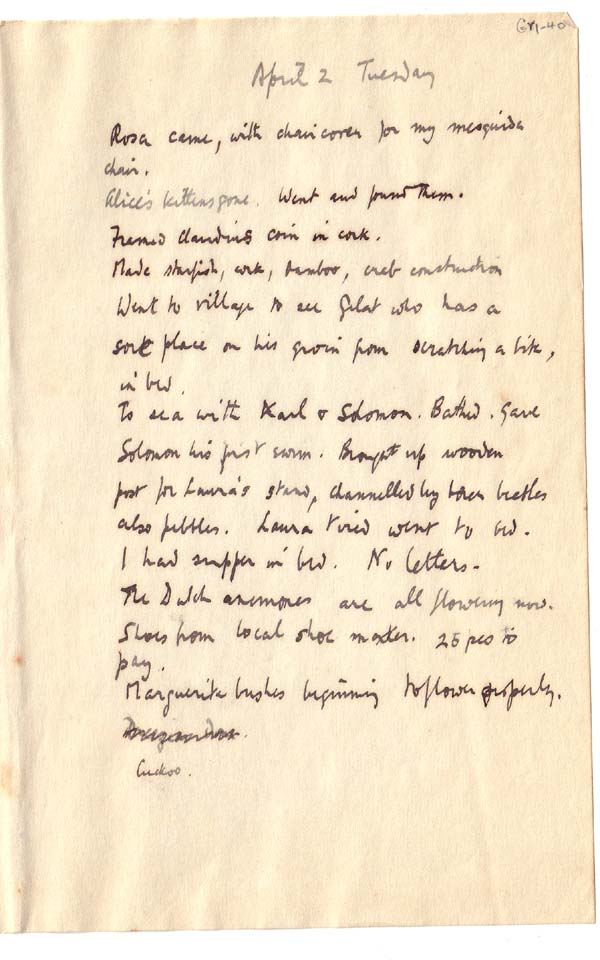 GY1-40
April 2 Tuesday
Rosa came, with chaircover for my mesquida
chair.
Alice's kittens gone. Went and found them.
Framed Claudius coin in cork.
Made starfish, cork, bamboo, crab construction
Went to village to see Gelat who has a
sore place on his groin from scratching a bite,
in bed.
To sea with Karl & Solomon. Bathed. Gave
Solomon his first swim. Brought up wooden
post for Laura's stand, channelled by borer beetles
also pebbles. Laura tired went to bed.
I had supper in bed. No letters.
The Dutch anemones are all flowering now.
Shoes from local shoe master. 25 pes to
pay.
Marguerite bushes beginning to flower properly.
Cuckoo.